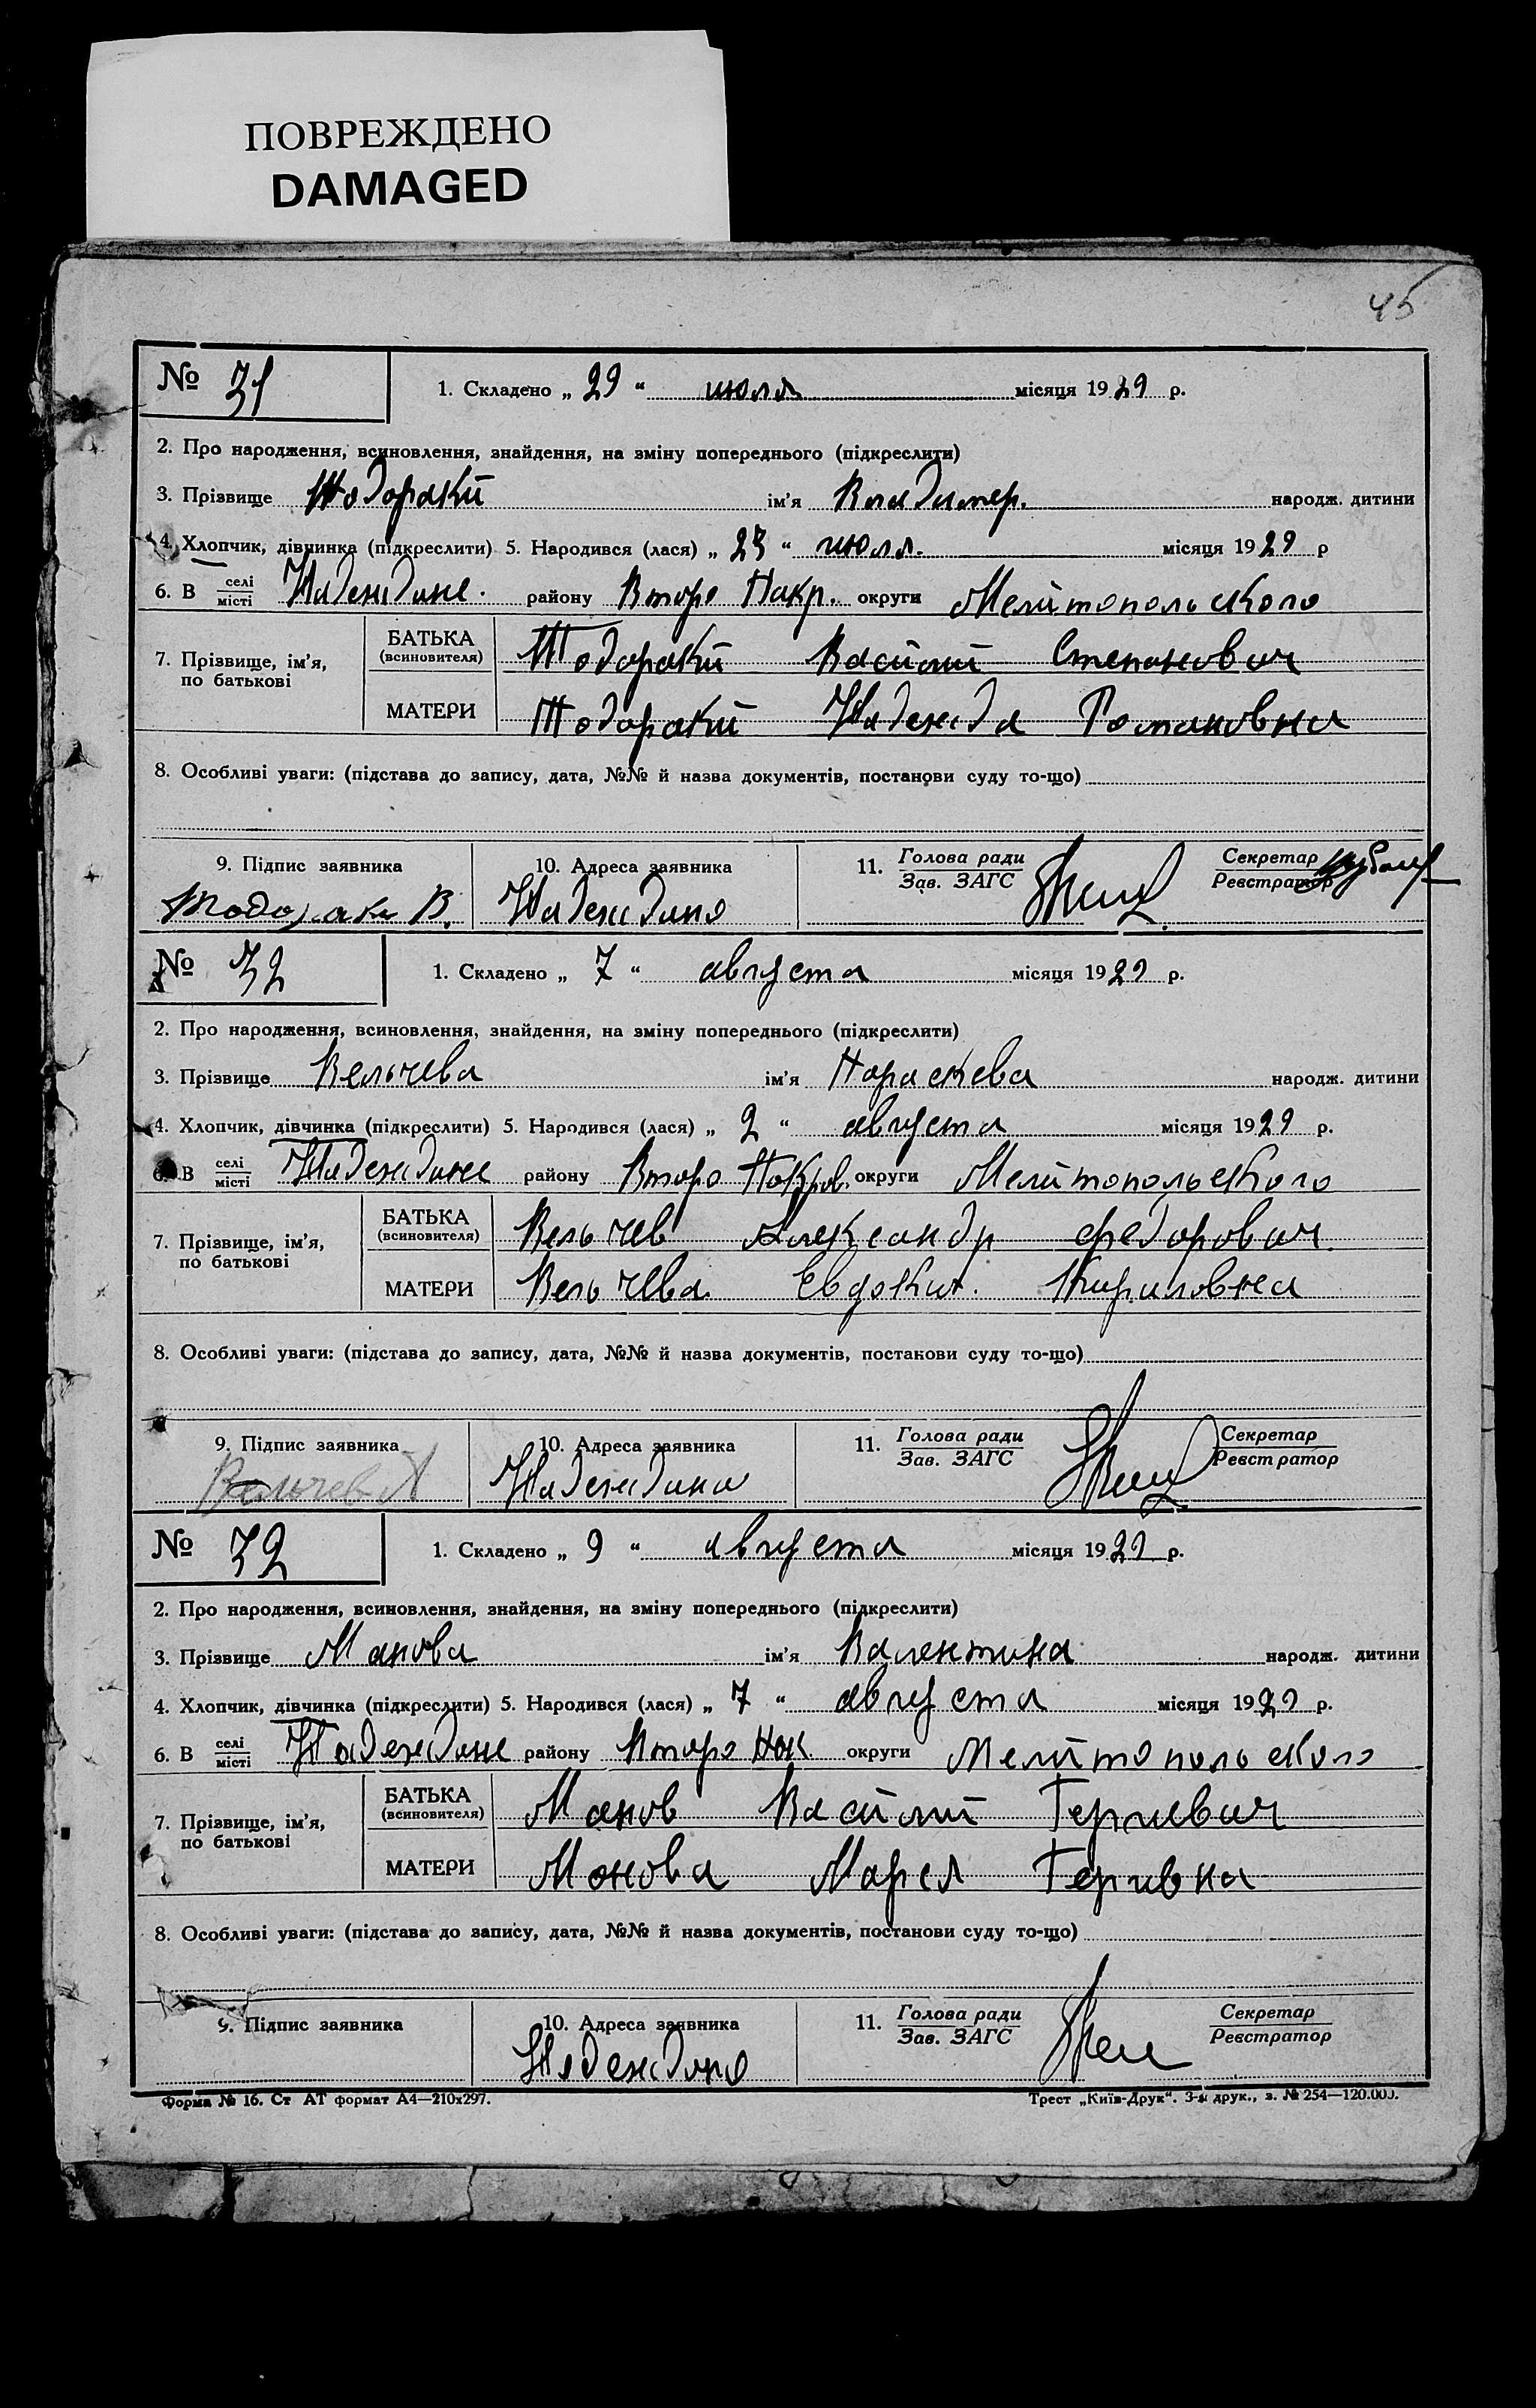 ПОВРЕЖДЕНО
DAMAGED
45
№ 31 1. Складено „ 29 “ июля місяця 1929 р.
2. Про народження, всиновлення, знайдення, на зміну попереднього (підкреслити)
3. Прізвище Тодоракй ім'я Владимер. народж. дитини
4. Хлопчик, дівчинка (підкреслити) 5. Народився (лася) „ 23 “ июля. місяця 1929 р
6. В селі місті Надеждине. району Второ Покр. округи Мелитопольского
7. Прізвище, ім'я, по батькові
БАТЬКА (всиновителя) Тодоракй Василий Степанович
МАТЕРИ Тодоракй Надежда Романовна
8. Особливі уваги: (підстава до запису, дата, №№ й назва документів, постанови суду то-що)
9. Підпис заявника 10. Адреса заявника 11. Голова ради Зав. ЗАГС Секретар Реєстратор
Тодораки В. Надеждино
№ 32 1. Складено „ 7 “ августа місяця 1929 р.
2. Про народження, всиновлення, знайдення, на зміну попереднього (підкреслити)
3. Прізвище Вельчева ім'я Параскева народж. дитини
4. Хлопчик, дівчинка (підкреслити) 5. Народився (лася) „ 2 “ августа місяця 1929 р.
6. В селі місті Надеждине району Второ Покров. округи Мелитопольского
7. Прізвище, ім'я, по батькові
БАТЬКА (всиновителя) Вельчев Александр Федорович
МАТЕРИ Вельчева Евдокия. Кириловна
8. Особливі уваги: (підстава до запису, дата, №№ й назва документів, постанови суду то-що)
9. Підпис заявника 10. Адреса заявника 11. Голова ради Зав. ЗАГС Секретар Реєстратор
Вельчев А Надеждина
№ 32 1. Складено „ 9 “ августа місяця 1929 р.
2. Про народження, всиновлення, знайдення, на зміну попереднього (підкреслити)
3. Прізвище Манова ім'я Валентина народж. дитини
4. Хлопчик, дівчинка (підкреслити) 5. Народився (лася) „ 7 “ августа місяця 1929 р.
6. В селі місті Надеждине району Второ Пок округи Мелитопольского
7. Прізвище, ім'я, по батькові
БАТЬКА (всиновителя) Манов Василий Гергиевич
МАТЕРИ Манова Мария Гергивна
8. Особливі уваги: (підстава до запису, дата, №№ й назва документів, постанови суду то-що)
9. Підпис заявника 10. Адреса заявника 11. Голова ради Зав. ЗАГС Секретар Реєстратор
Надеждино
Форма № 16. Ст АТ формат А4—210х297. Трест „Київ-Друк“. 3-я друк., з. № 254—120.000.